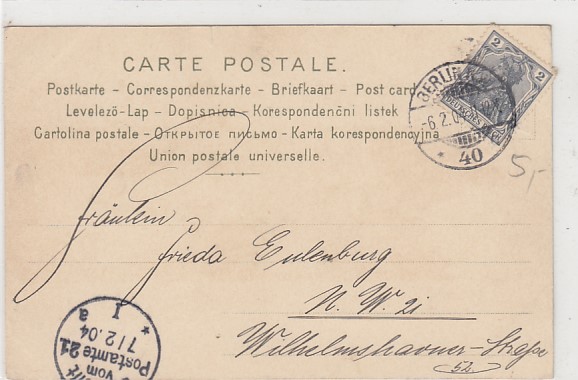 CARTE POSTALE.
Postkarte - Correspondenzkarte - Briefkaart - Post card
Levelező-Lap - Dopisnica - Korespondenční listek
Cartolina postale - Открытое письмо - Karta korespondencyjna
Union postale universelle.
2 2
BERLIN
-6.2.04
* 40
5,-
Fräulein
Frieda Eulenburg
N. W. 21
Wilhelmshavner-Straße
52.
vom
Postamte 21
7/2.04
* I a